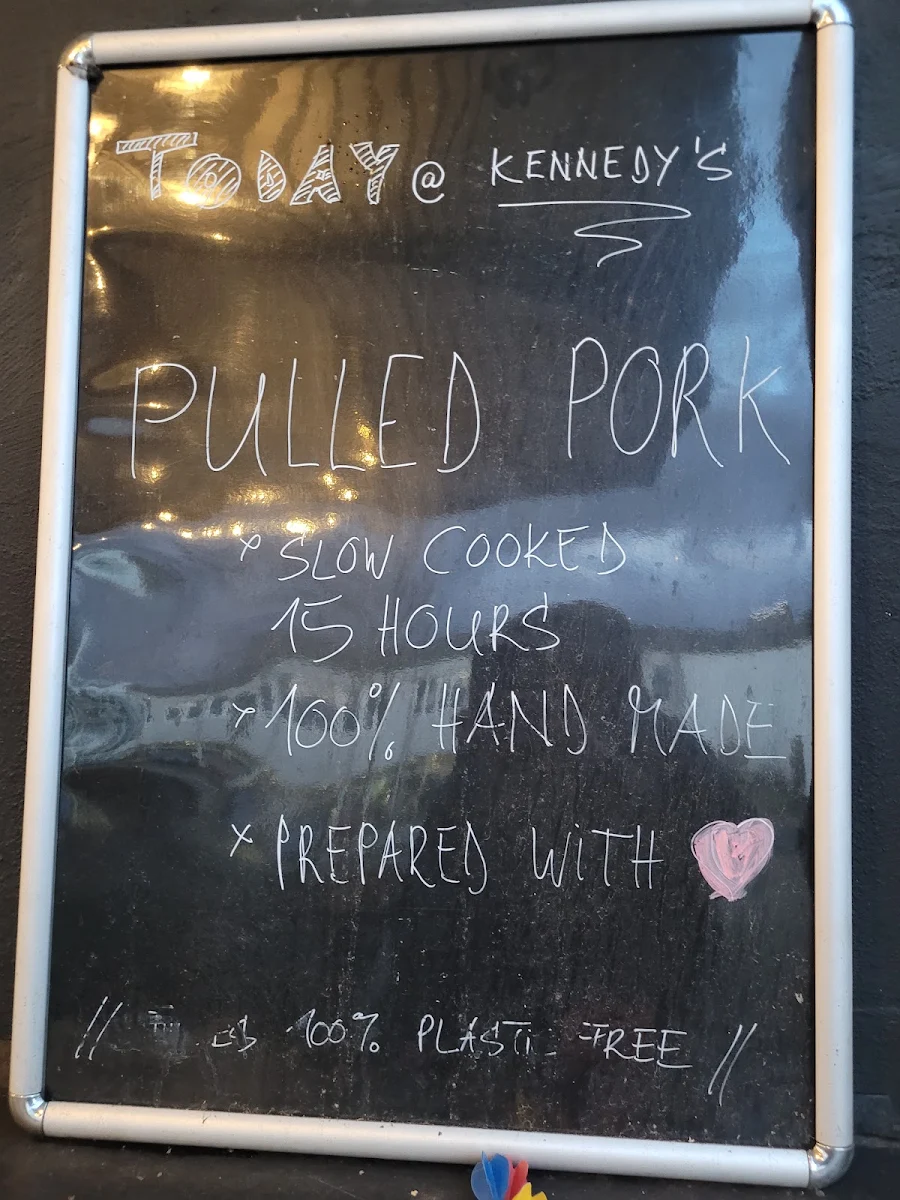 TODAY @ KENNEDY'S
PULLED PORK
x SLOW COOKED
15 HOURS
x 100% HAND MADE
x PREPARED WiTH
// 100% FREE //